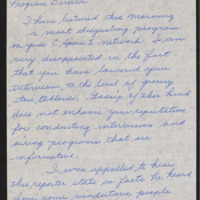 Program Director
I have listened this morning
a most disgusting program
on your C Span I network. I am
very disappointed in the fact
that you have lowered your
interviews, to the level of grocery
store tabloids. Gossip of this kind
does not enhance your reputation
for conducting interviews and
airing programs that are
informative.
I was appalled to hear
this reporter state as facts he heard
from some vindictive people